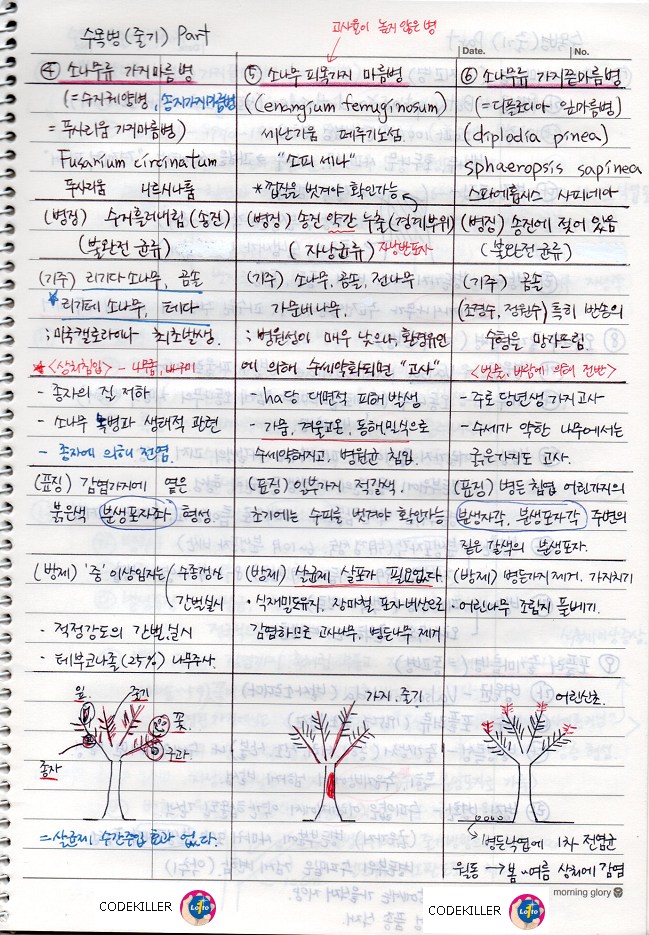 수목병(줄기) Part
고사율이 높지 않은 병
Date. No.
④ 소나무류 가지마름병
(=수지궤양병, 송진가지마름병
=푸사리움 가지마름병)
Fusarium circinatum
푸사리움 너르시나툼
(병징) 수지흘러내림(송진)
(불완전균류)
(기주) 리기다소나무, 곰솔
* 리기테소나무, 테다
; 미국캘로라이나 최초발생.
* <상처침입> - 나무좀, 바구미
- 종자의 질 저하
- 소나무 녹병과 생태적 관련
- 종자에 의해 전염.
(표징) 감염가지에 옅은
붉은색 분생포자좌 형성
(방제) '중' 이상임지는 수종갱신
간벌실시
- 적정강도의 간벌실시
- 테부코나졸(25%) 나무주사.
잎. 줄기 꽃.
종자 구과.
=살균제 수간주입 효과 없다.
⑤ 소나무 피목가지 마름병
(Cenangium ferruginosum)
세난기움 페루기노섬.
"소피 세나"
*껍질을 벗겨야 확인가능
(병징) 송진 약간 누출(경계부위)
(자낭균류) 자낭반포자
(기주) 소나무, 곰솔, 전나무
가문비나무.
; 병원성이 매우 낮으나, 환경유인
에 의해 수세약화되면 "고사"
- ha당 대면적 피해발생
- 가뭄, 겨울고온, 동해, 밀식으로
수세약해지고, 병원균 침입.
(표징) 일부가지 적갈색.
초기에는 수피를 벗겨야 확인가능
(방제) 살균제 살포가 필요없다.
· 식재밀도유지, 장마철 포자비산으로
감염하므로 고사나무, 병든나무 제거
가지. 줄기
⑥ 소나무류 가지끝마름병
(=디플로디아 잎마름병)
(diplodia pinea)
sphaeropsis sapinea
스파에롭시스 사피네아
(병징) 송진에 젖어 있음
(불완전균류)
(기주) 곰솔
(조경수, 정원수) 특히 반송의
수형을 망가뜨림
<빗물, 바람에 의해 전반>
- 주로 당년생 가지고사
- 수세가 약한 나무에서는
굵은가지도 고사.
(표징) 병든 침엽 어린가지의
분생자각, 분생포자각 주변의
짙은 갈색의 분생포자.
(방제) 병든가지제거. 가지치기
· 어린나무 조림지 풀베기.
어린신초.
병든낙엽에 1차 전염균
월동 → 봄~여름 상처에 감염
morning glory
CODEKILLER Lotto
CODEKILLER Lotto